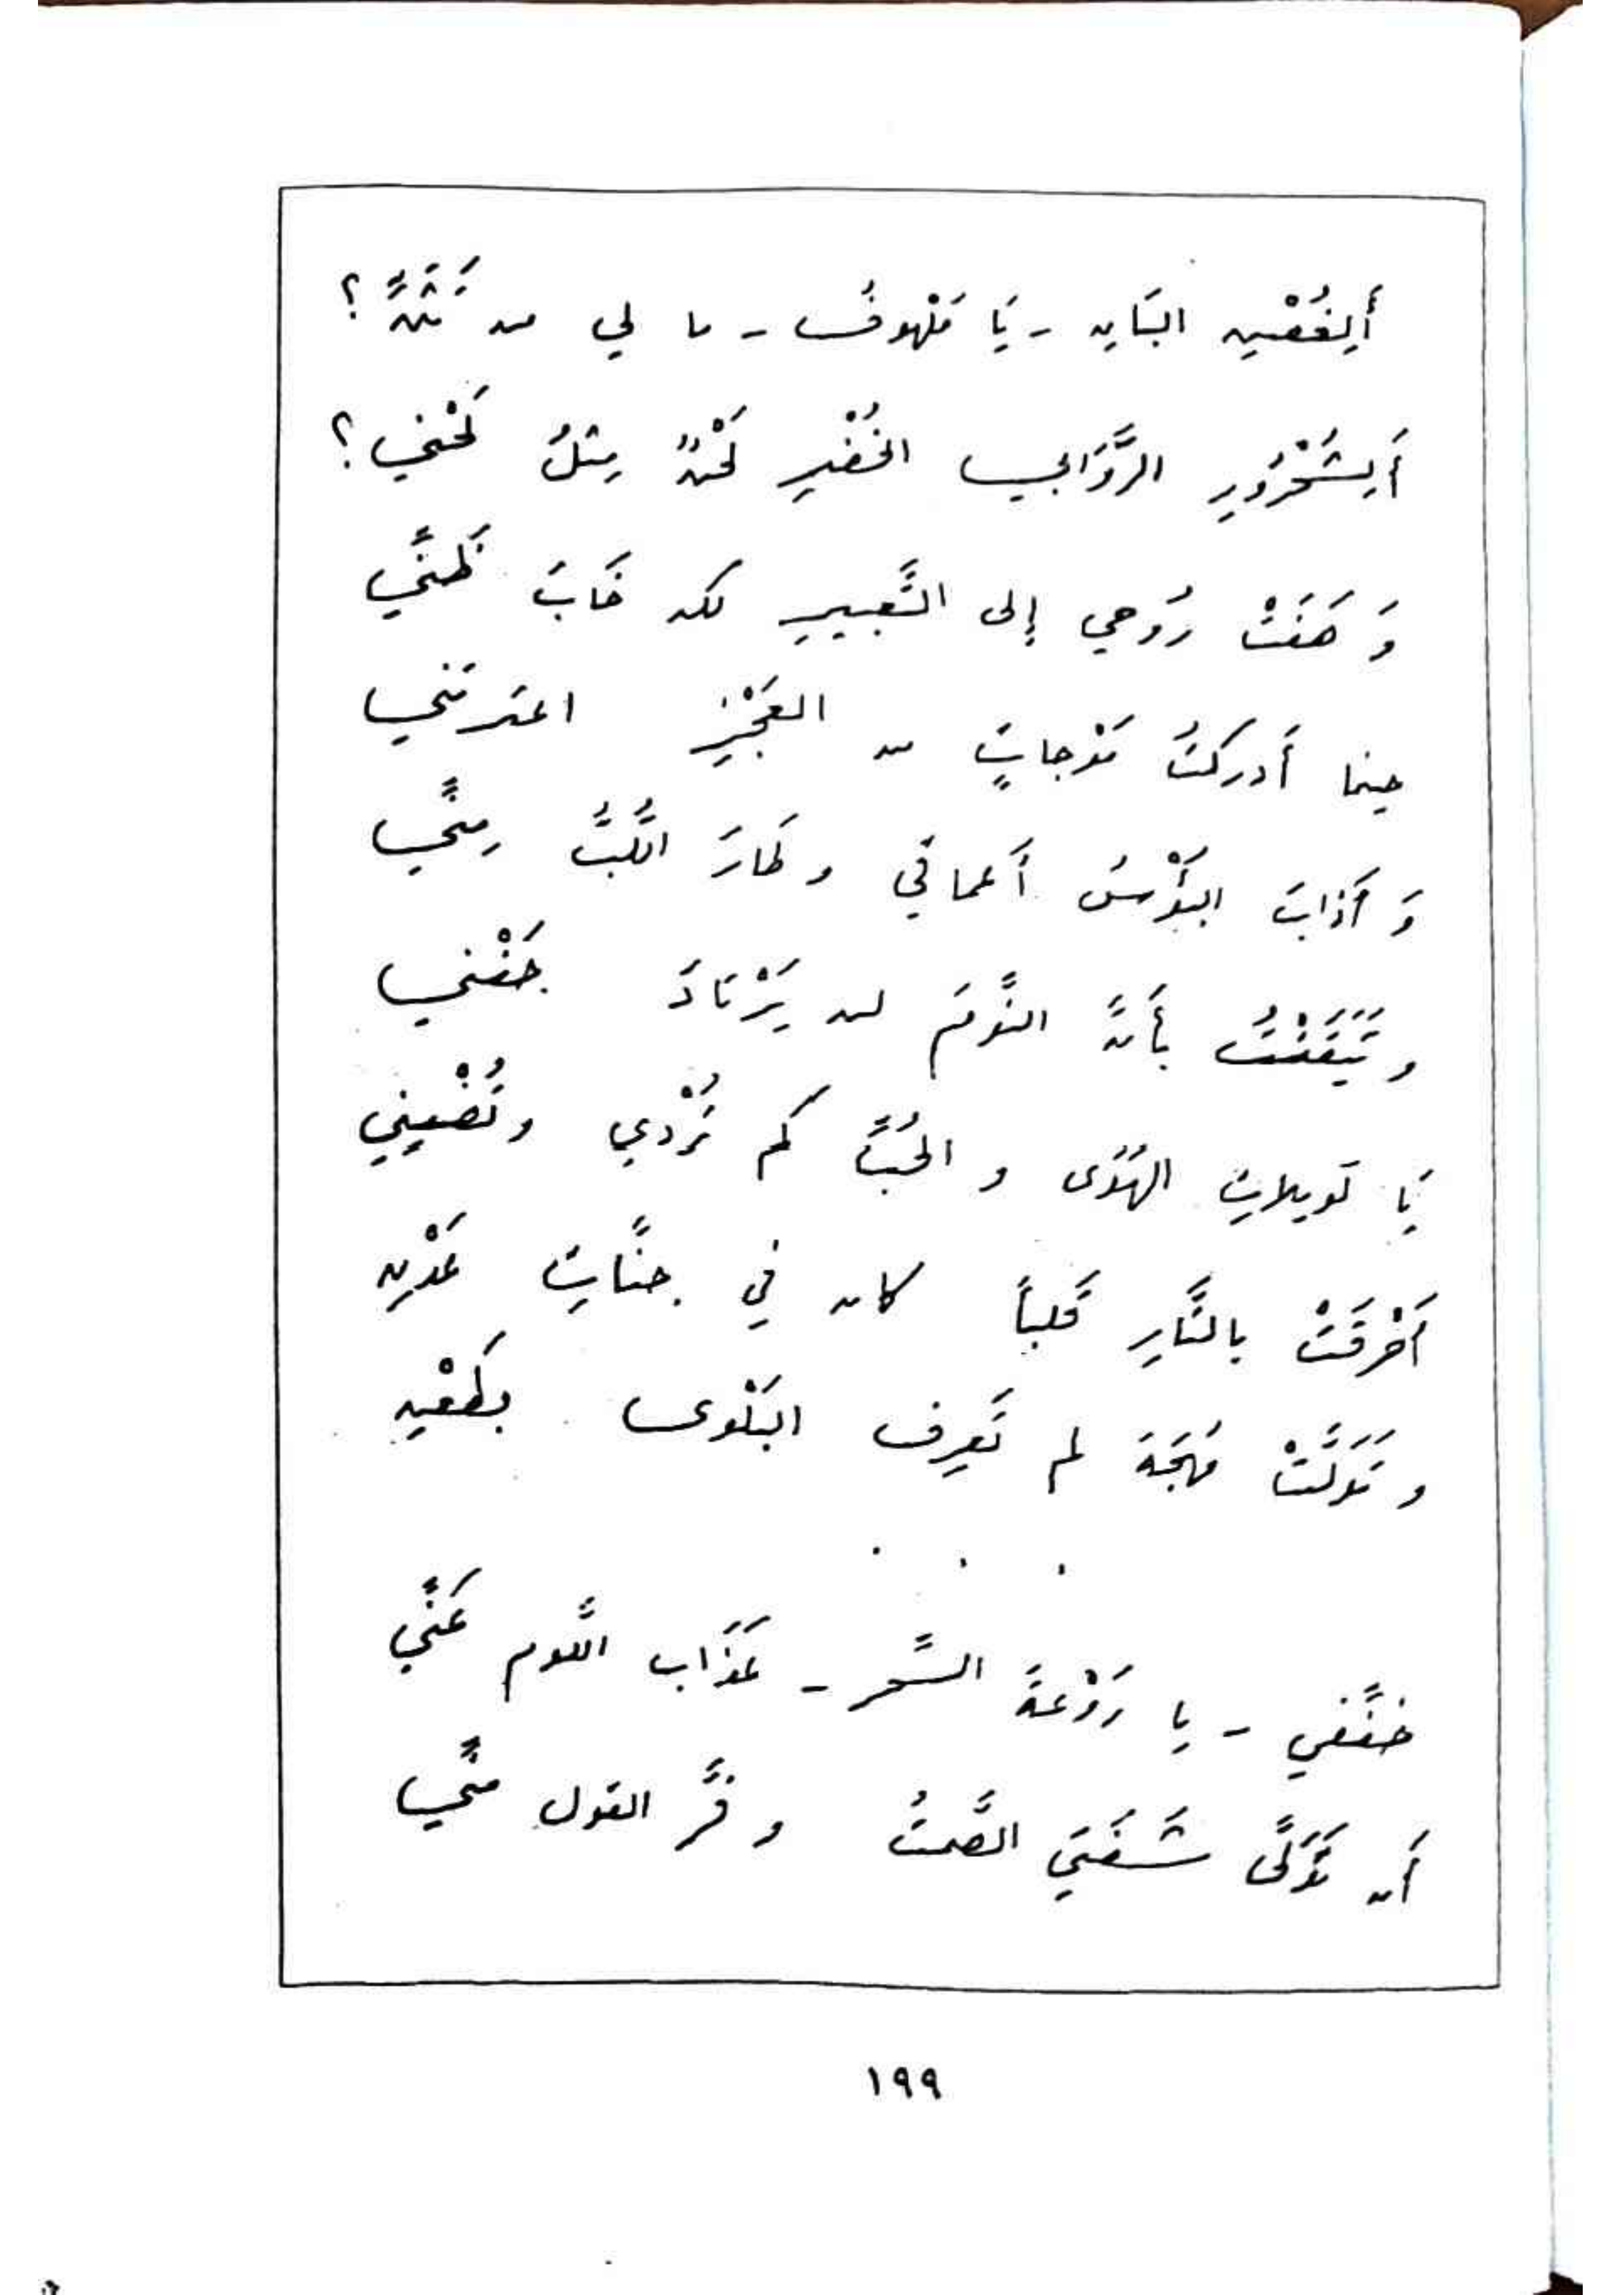 أَلِغُصْنِ البَانِ - يَا مَلْهوفُ - ما لي من تَثَنٍّ؟
أَلِشَحْرُورِ الرَّوَابي الخُضْرِ لَحْنٌ مِثلُ لَحْني؟
وَ هَفَتْ رُوحي إلى التَّعبيرِ لكن خَابَ ظَنِّي
حينما أَدركتُ مَوْجاتٍ من العَجْزِ اعتَرتَني
وَ أَذابَ البُؤْسُ أَعماقي و طَارَ اللُّبُّ مِنِّي
و تَيَقَّنْتُ بأَنَّ النَّومَ لن يَرْتادَ جَفْني
يَا لَويلاتِ الهَوَى و الحُبِّ كم تُرْدي و تُضْنِيني
أَحْرقَتْ بالنَّارِ قَلباً كان في جنَّاتِ عَدْنِ
و تَوَلَّتْ مُهجَةً لم تَعرِف البَلْوى بطَعْنِ
. . .
خفِّفي - يا رَوْعةَ السِّحر - عَذَاب اللَّوم عَنِّي
أَن تَوَلَّى شَفَتَي الصَّمتُ و فَرَّ القول منِّي
١٩٩